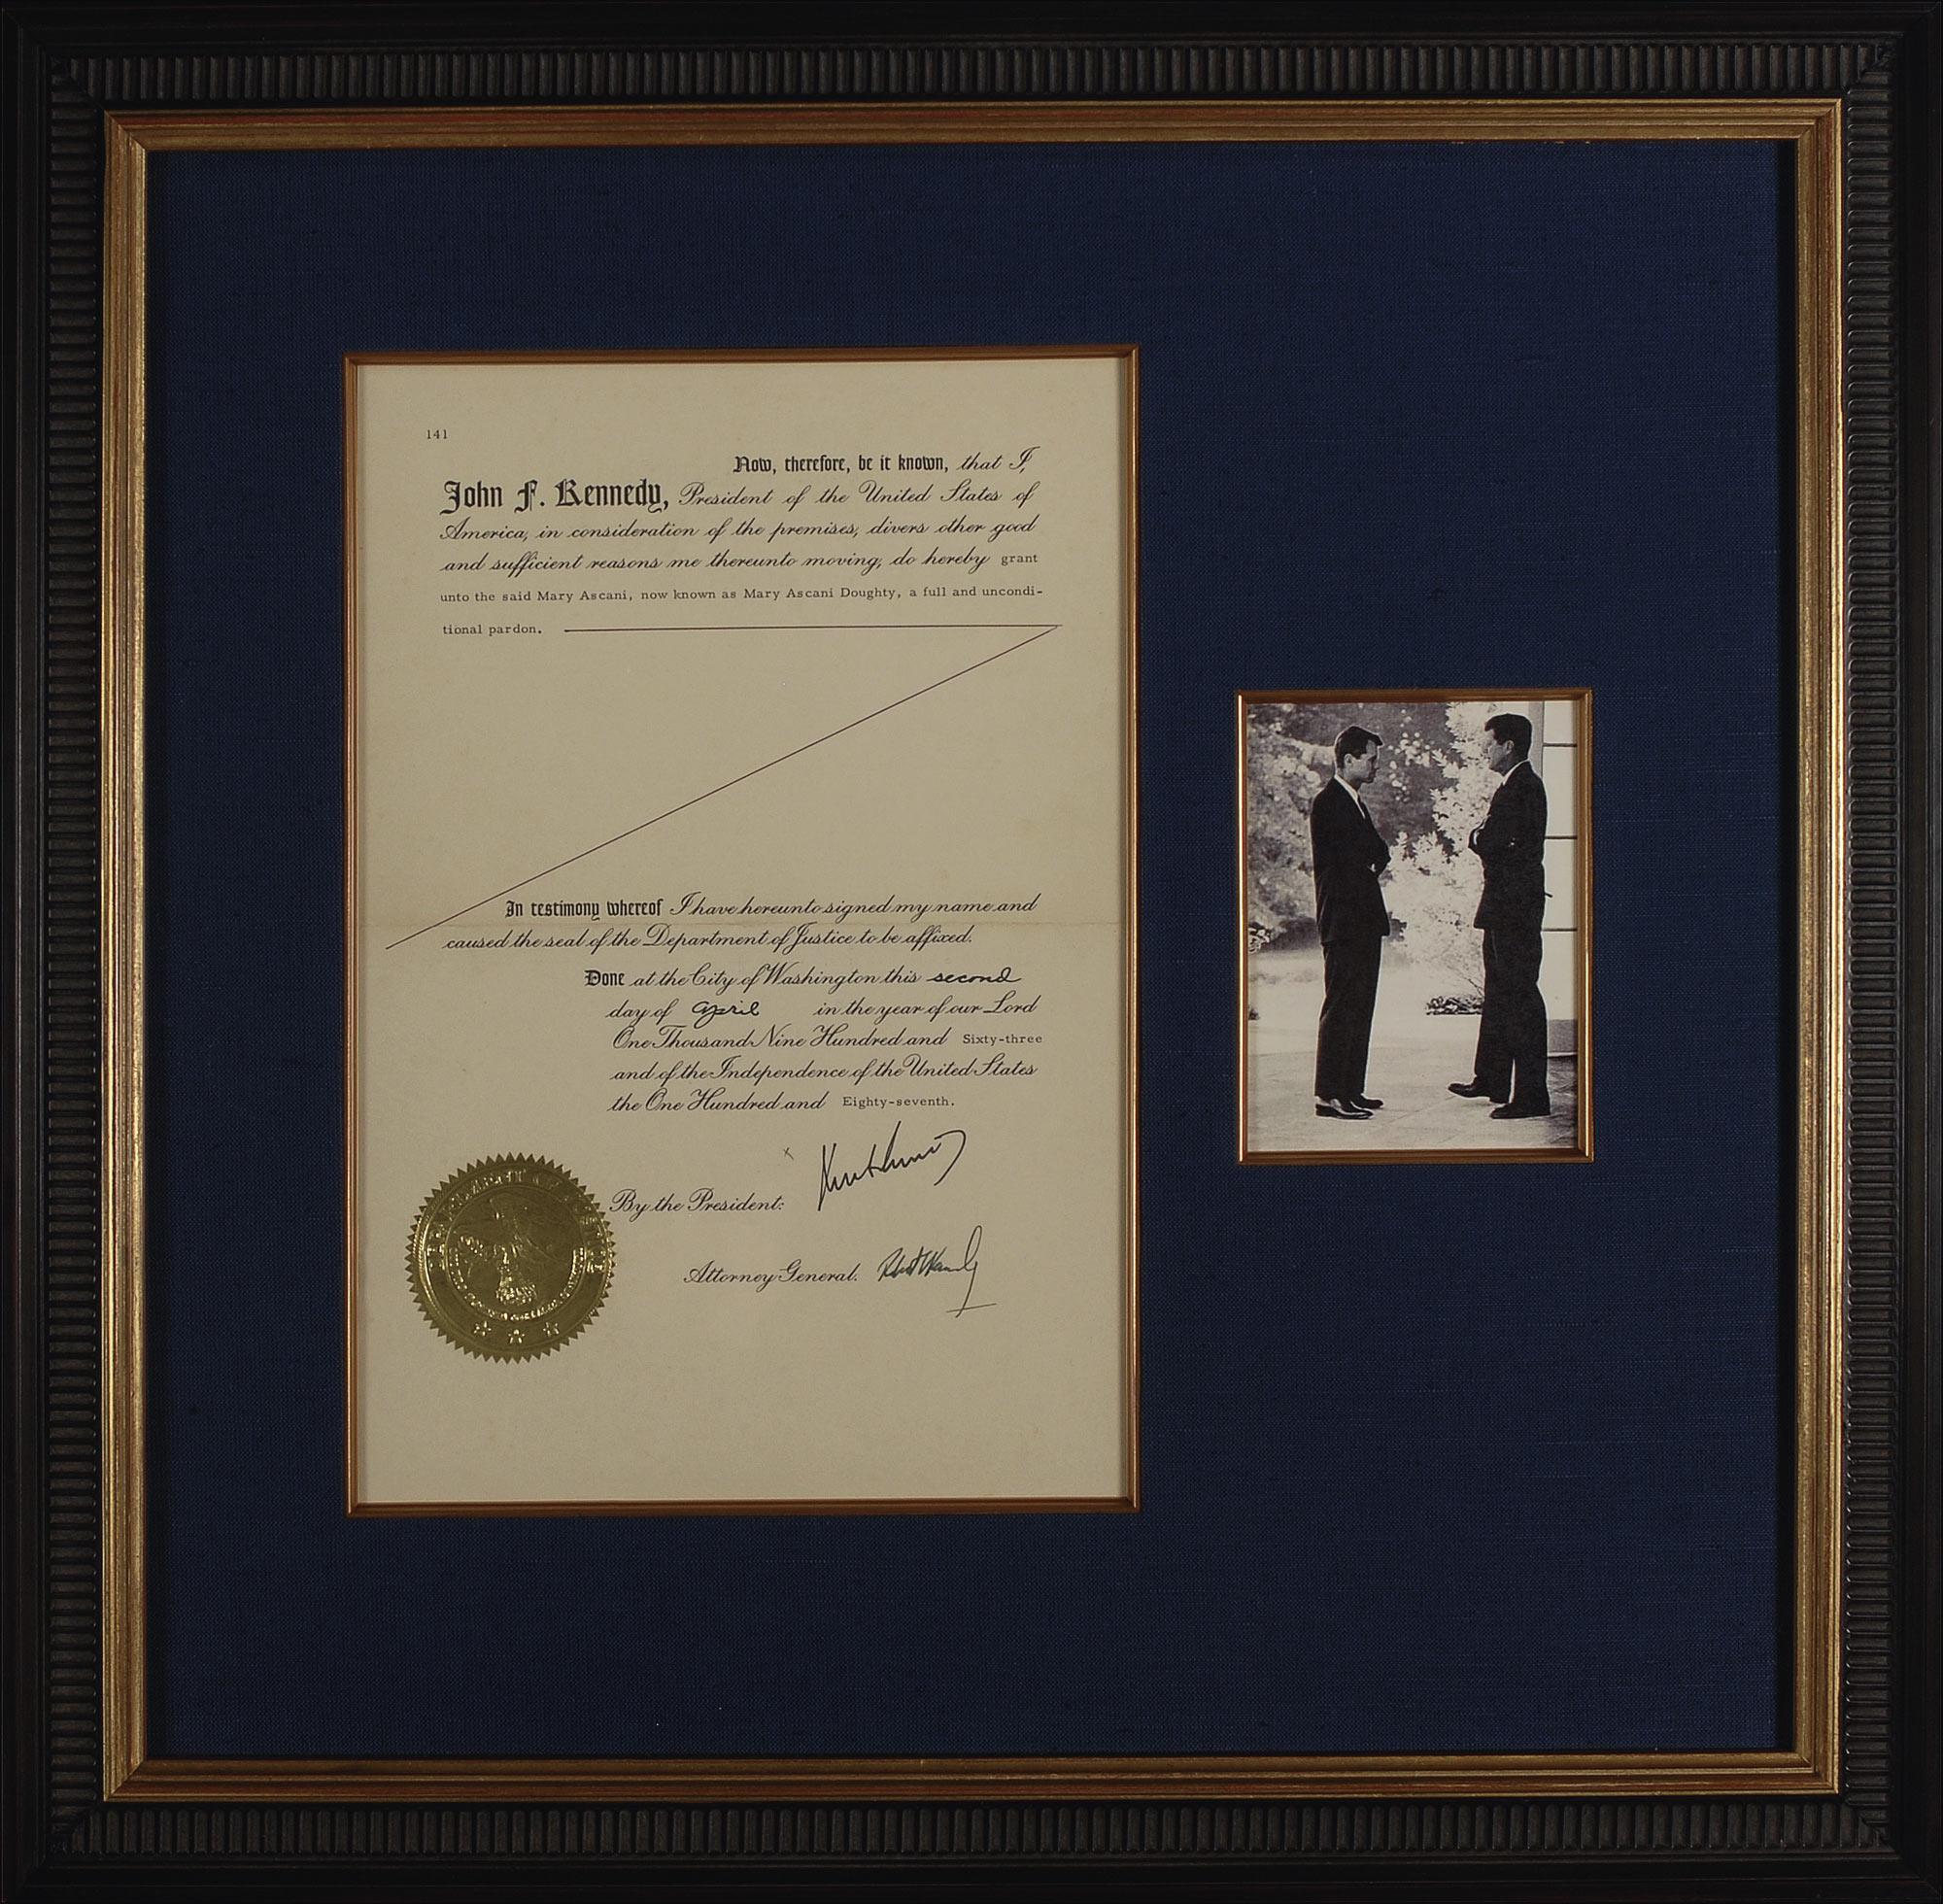 141
Now, therefore, be it known, that I,
John F. Kennedy, President of the United States of
America, in consideration of the premises, divers other good
and sufficient reasons me thereunto moving, do hereby grant
unto the said Mary Ascani, now known as Mary Ascani Doughty, a full and uncondi-
tional pardon.
In testimony whereof I have hereunto signed my name and
caused the seal of the Department of Justice to be affixed.
Done at the City of Washington this second
day of April in the year of our Lord
One Thousand Nine Hundred and Sixty-three
and of the Independence of the United States
the One Hundred and Eighty-seventh.
By the President:
Attorney General.